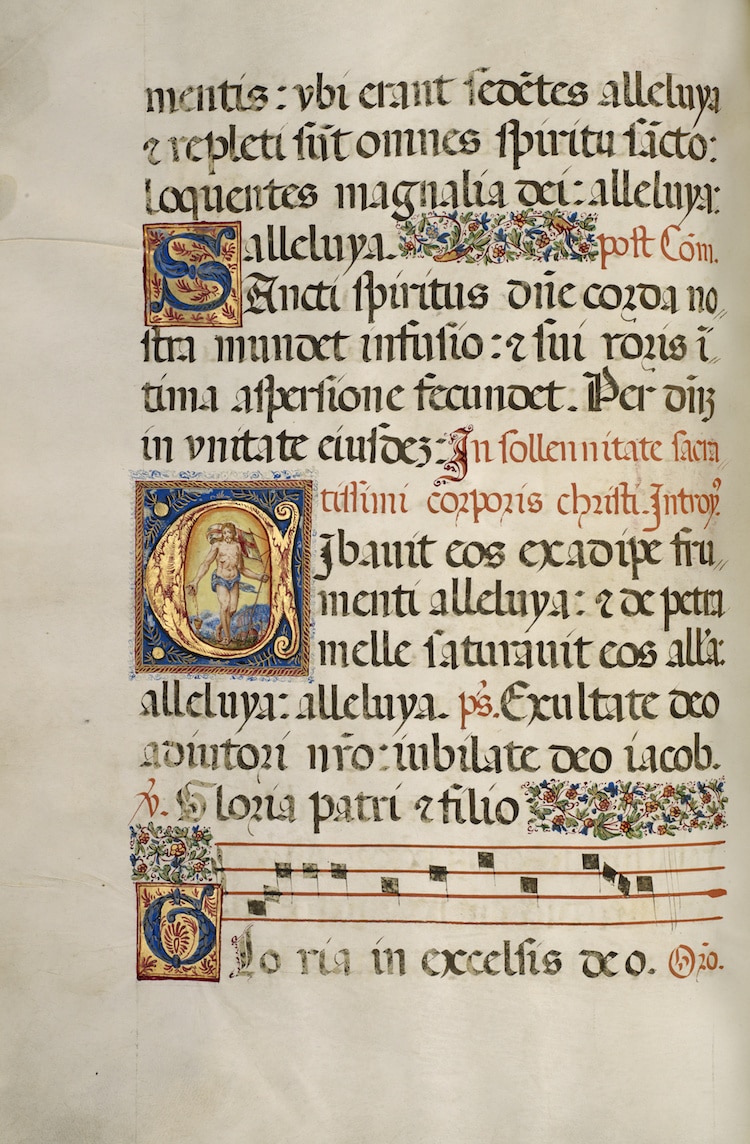 mentis: vbi erant sedētes alleluya
⁊ repleti sūt omnes spiritu sācto:
loquentes magnalia dei: alleluya:
alleluya. post Cōm.
SAncti spiritus dn̄e corda no„
stra mundet infusio: ⁊ sui roris ī„
tima aspersione fecundet. Per dn̄ꝫ
in vnitate eiusdeꝫ: In sollennitate sacra
tissimi corporis christi. Introyꝰ.
CIbauit eos exadipe fru„
menti alleluya: ⁊ de petra
melle saturauit eos all'a:
alleluya: alleluya. ps̄. Exultate deo
adiutori nr̄o: iubilate deo iacob.
℣. Gloria patri ⁊ filio
GLo ria in excelsis deo. Or̄o.